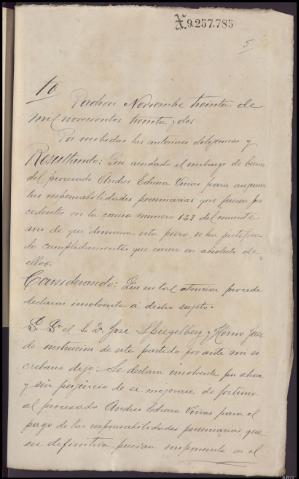 X9.257.785
5
Padron Noviembre treinta de
mil novecientos treinta y dos
Por recibidas las anteriores diligencias y
Resultando: Que acordado el embargo de bienes
del procesado Andres Vivas para asegurar
las responsabilidades pecuniarias que fueran pro
cedentes en la causa numero 123 del
ano de que dimana esta pieza, se ha justifica
do cumplidamente que carece en absoluto de
ellos.
Considerando: Que en tal atencion procede
declarar insolvente a dicho sujeto.
S. Sª el D. Jose Spiegelberg y Horno Juez
de instruccion de este partido por ante mi es
cribano dijo: Se declara insolvente por ahora
y sin perjuicio de si mejorase de fortuna
al procesado Andres Vivas para el
pago de las responsabilidades pecuniarias que
en definitiva puedan imponerse en el